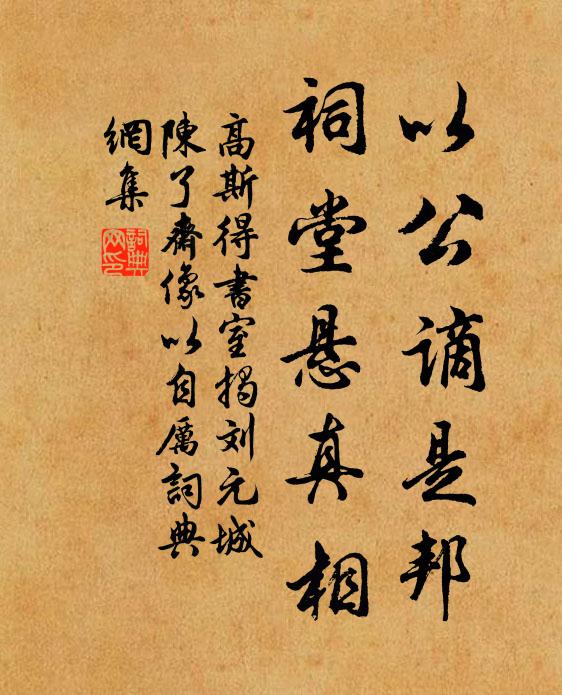 以公谪是邦
祠堂悬真相
高斯得書室揭刘元城
陳了齋像以自厲詞典
網集
詞典
网印